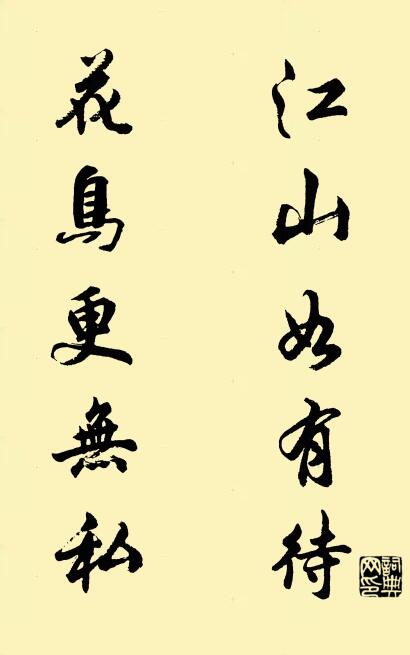 江山如有待
花鳥更無私
詞典網印